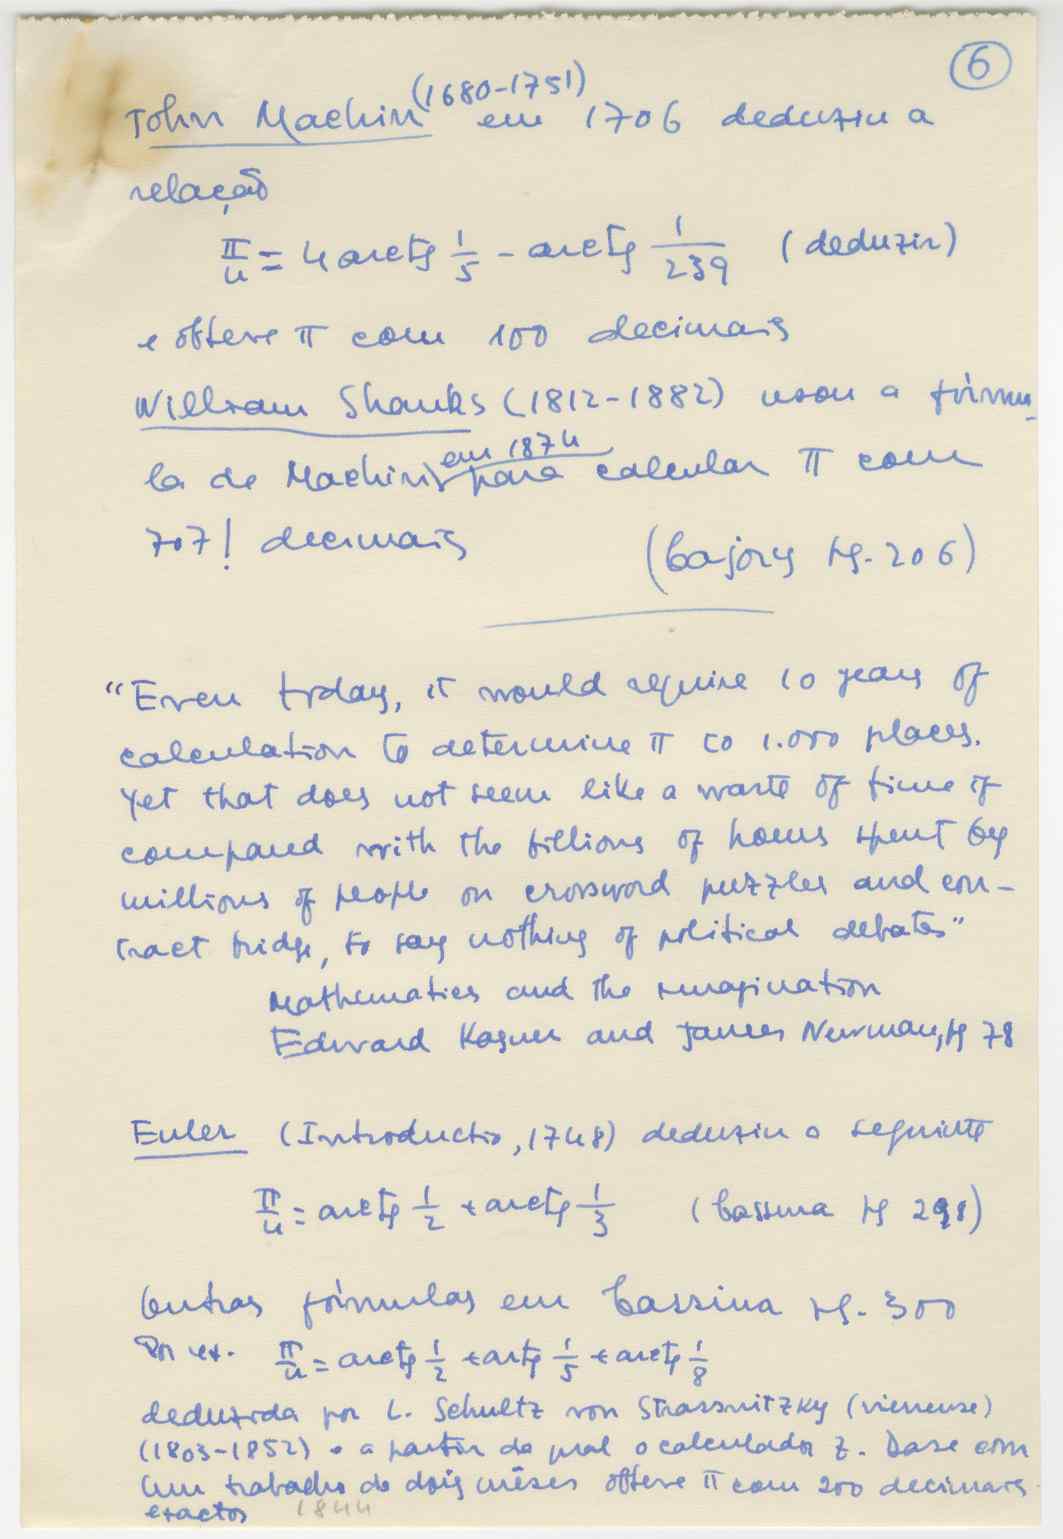 6
John Machin (1680-1751) em 1706 deduziu a
relação
π/4 = 4 arctg 1/5 - arctg 1/239 (deduzir)
e obteve π com 100 decimais
William Shanks (1812-1882) usou a fórmu-
la de Machin em 1874 para calcular π com
707! decimais
(Cajory pg. 206)
"Even today, it would require 10 years of
calculation to determine π to 1.000 places.
Yet that does not seem like a waste of time if
compared with the billions of hours spent by
millions of people on crossword puzzles and con-
tract bridge, to say nothing of political debates"
Mathematics and the imagination
Edward Kasner and James Newman, pg 78
Euler (Introductio, 1748) deduziu o seguinte
π/4 = arctg 1/2 + arctg 1/3 (Cassina pg 298)
Outras fórmulas em Cassina pg. 300
Por ex. π/4 = arctg 1/2 + artg 1/5 + arctg 1/8
deduzida por L. Schultz von Strassnitzky (vienense)
(1803-1852) e a partir da qual o calculador Z. Dase com
um trabalho de dois mêses obteve π com 200 decimais
exactos 1844